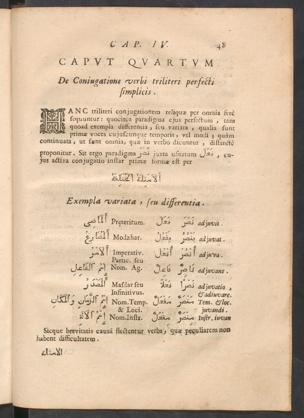 CAP. IV. 48
CAPVT QVARTVM
De Coniugatione verbi triliteri perfecti
simplicis.
HANC triliteri conjugationem reliquæ per omnia ferè
sequuntur: quocirca paradigma ejus perfectum, tam
quoad exempla differentia, seu variata, qualia sunt
primæ voces cujuscunque temporis, vel modi; quàm
continuata, ut sunt omnia, quæ in verbo dicuntur, distinctè
proponitur. Sit ergo paradigma نَصَرَ juxta usuetum فَعَلَ, cu-
jus activa conjugatio instar primæ formæ est per
Exempla variata, seu differentia.
اَلْمَاضِى Præteritum. فَعَلَ نَصَرَ adjuvit.
اَلْمُضَارِعُ Modahar. يَفْعَلُ يَنْصُرُ adjuvat.
اَلْأَمْرُ Imperativ. أُفْعُلْ أُنْصُرْ adjuva.
Partic. seu
اِسْمُ الْفَاعِلِ Nom. Ag. فَاعِلٌ نَاصِرٌ adjuvans.
اَلْمَصْدَرُ Masdar seu فَعْلًا نَصْرًا adjuvatio,
Infinitivus. & adiuvare.
اِسْمُ الزَّمَانِ وَالْمَكَانِ Nom. Temp. مَفْعَلٌ مَنْصَرٌ Tem. & loc.
& Loci. juvandi.
اِسْمُ الْآلَةِ Nom. Instr. مِفْعَلٌ مِنْصَرٌ Instr. iuvan
Sicque brevitatis causâ flectentur verba, quæ peculiarem non
habent difficultatem.
الامثلة